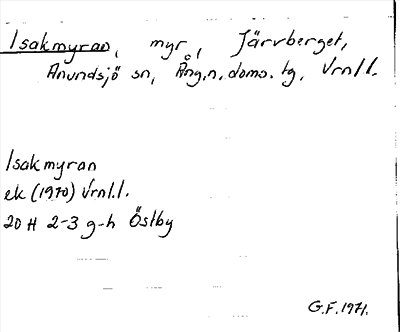 Isakmyran, myr, Järvberget,
Anundsjö sn, Ång.n.doms.tg, Vrnl.l.
Isakmyran
ek (1970) Vrnl.l.
20 H 2-3 g-h Östby
G.F. 1971.